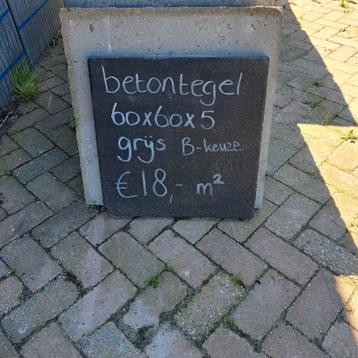 betontegel
60x60x5
grijs B-keuze
€18,- m²